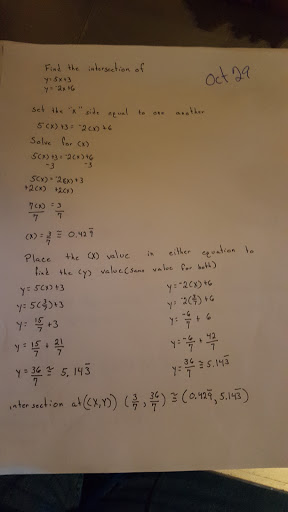 Find the intersection of
y = 5x+3
y = ⁻2x+6
Oct 29
Set the "x" side equal to one another
5(x)+3 = ⁻2(x)+6
Solve for (x)
5(x)+3 = ⁻2(x)+6
-3 -3
5(x) = ⁻2(x)+3
+2(x) +2(x)
7(x) = 3
7 7
(x) = 3/7 ≅ 0.429̅
Place the (x) value in either equation to
find the (y) value. (same value for both)
y = 5(x)+3 y = ⁻2(x)+6
y = 5(3/7)+3 y = ⁻2(3/7)+6
y = 15/7 + 3 y = -6/7 + 6
y = 15/7 + 21/7 y = -6/7 + 42/7
y = 36/7 ≅ 5.143̅ y = 36/7 ≅ 5.143̅
intersection at ((x,y)) (3/7, 36/7) ≅ (0.429̅, 5.143̅)